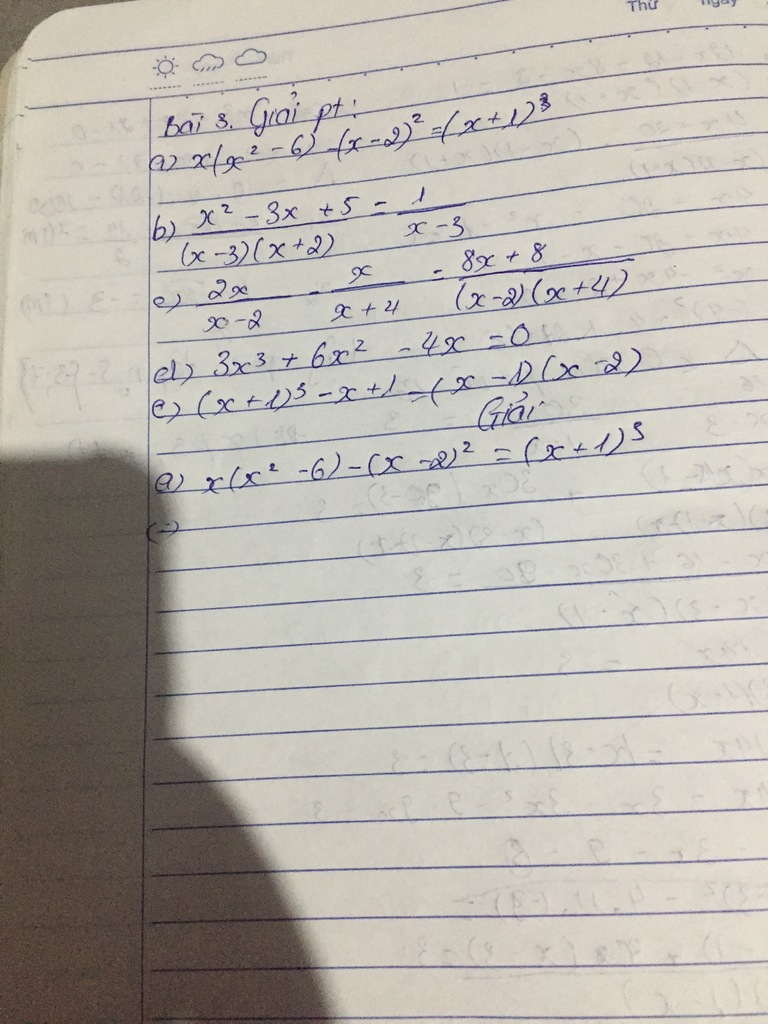 Thứ Ngày
Bài 3. Giải pt:
a) x(x² - 6) - (x - 2)² = (x + 1)³
b) (x² - 3x + 5)/((x - 3)(x + 2)) = 1/(x - 3)
c) 2x/(x - 2) - x/(x + 4) = (8x + 8)/((x - 2)(x + 4))
d) 3x³ + 6x² - 4x = 0
e) (x + 1)³ - x + 1 = (x - 1)(x - 2)
Giải
a) x(x² - 6) - (x - 2)² = (x + 1)³